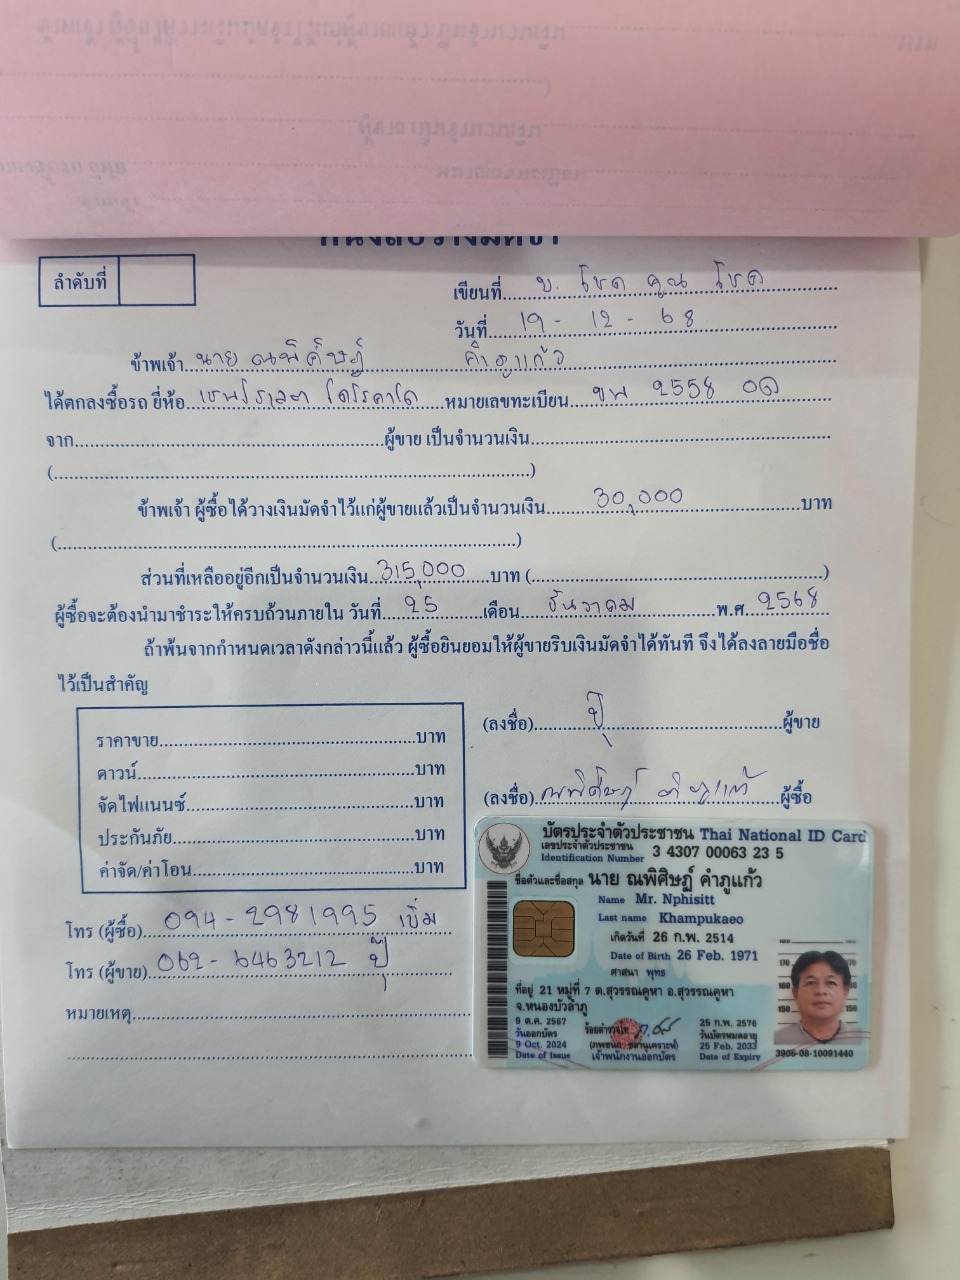 หนังสือวางมัดจำ
ลำดับที่
เขียนที่ บ. โชค คูณ โชค
วันที่ 19 - 12 - 68
ข้าพเจ้า นาย ณพิศิษฎ์ คำภูแก้ว
ได้ตกลงซื้อรถ ยี่ห้อ เชฟโรเลต โคโรลาโด หมายเลขทะเบียน ขพ 2558 อด
จาก ผู้ขาย เป็นจำนวนเงิน
( )
ข้าพเจ้า ผู้ซื้อได้วางเงินมัดจำไว้แก่ผู้ขายแล้วเป็นจำนวนเงิน 30,000 บาท
( )
ส่วนที่เหลืออยู่อีกเป็นจำนวนเงิน 315,000 บาท ( )
ผู้ซื้อจะต้องนำมาชำระให้ครบถ้วนภายใน วันที่ 25 เดือน ธันวาคม พ.ศ. 2568
ถ้าพ้นจากกำหนดเวลาดังกล่าวนี้แล้ว ผู้ซื้อยินยอมให้ผู้ขายริบเงินมัดจำได้ทันที จึงได้ลงลายมือชื่อ
ไว้เป็นสำคัญ
ราคาขาย บาท
ดาวน์ บาท
จัดไฟแนนซ์ บาท
ประกันภัย บาท
ค่าจัด/ค่าโอน บาท
(ลงชื่อ) ปุ๊ ผู้ขาย
(ลงชื่อ) ณพิศิษฎ์ คำภูแก้ว ผู้ซื้อ
โทร (ผู้ซื้อ) 094-2981995
โทร (ผู้ขาย) 062-6463212 ปุ๊
หมายเหตุ
บัตรประจำตัวประชาชน Thai National ID Card
เลขประจำตัวประชาชน
Identification Number 3 4307 00063 23 5
ชื่อตัวและชื่อสกุล นาย ณพิศิษฎ์ คำภูแก้ว
Name Mr. Nphisitt
Last name Khampukaeo
เกิดวันที่ 26 ก.พ. 2514
Date of Birth 26 Feb. 1971
ศาสนา พุทธ
ที่อยู่ 21 หมู่ที่ 7 ต.สุวรรณคูหา อ.สุวรรณคูหา
จ.หนองบัวลำภู
9 ต.ค. 2567
วันออกบัตร
9 Oct. 2024
Date of Issue
เจ้าพนักงานออกบัตร
25 ก.พ. 2576
วันบัตรหมดอายุ
25 Feb. 2033
Date of Expiry
170
160
150
3905-08-10091440